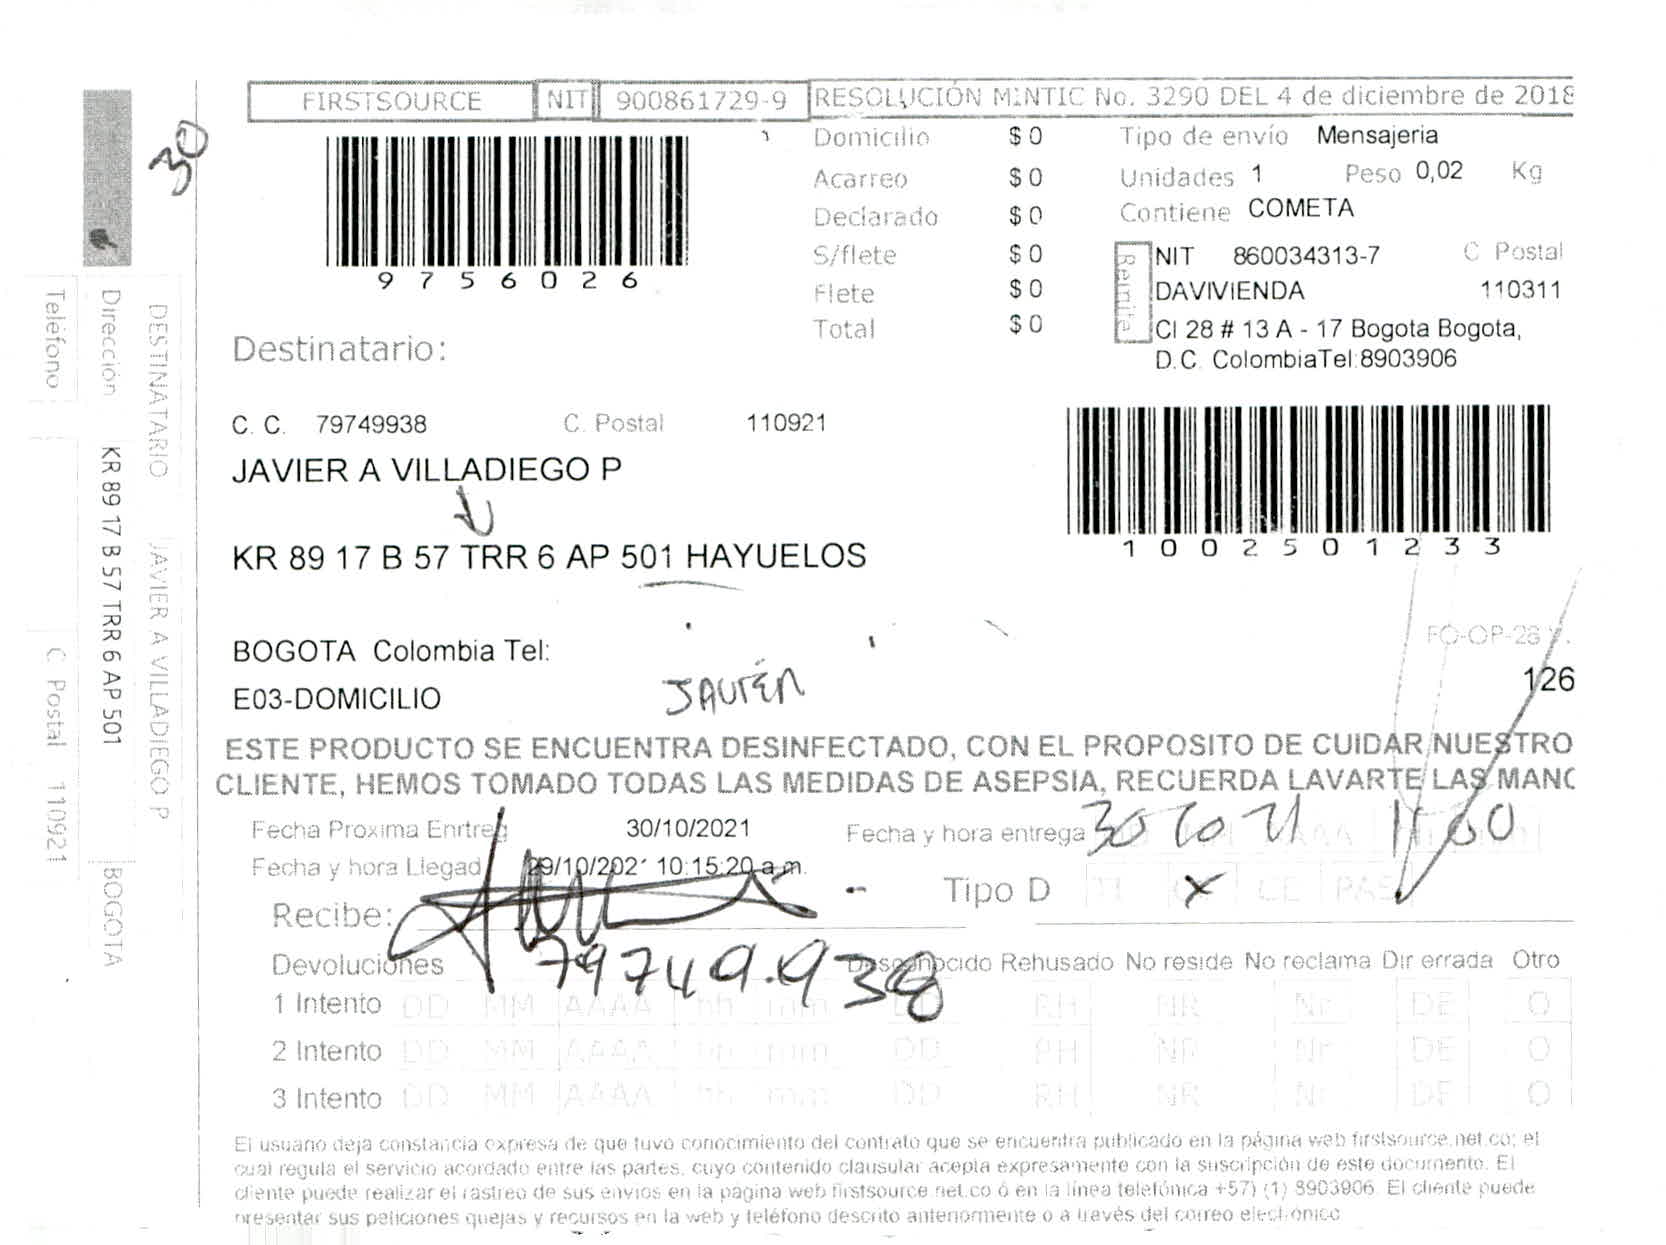 FIRSTSOURCE NIT 900861729-9 RESOLUCIÓN MINTIC No. 3290 DEL 4 de diciembre de 2018
30
9 7 5 6 0 2 6
Domicilio $ 0
Acarreo $ 0
Declarado $ 0
S/flete $ 0
Flete $ 0
Total $ 0
Tipo de envío Mensajeria
Unidades 1 Peso 0,02 Kg
Contiene COMETA
Remite
NIT 860034313-7 C Postal
DAVIVIENDA 110311
Cl 28 # 13 A - 17 Bogota Bogota,
D.C. ColombiaTel:8903906
1 0 0 2 5 0 1 2 3 3
Destinatario:
C. C. 79749938 C. Postal 110921
JAVIER A VILLADIEGO P
KR 89 17 B 57 TRR 6 AP 501 HAYUELOS
BOGOTA Colombia Tel:
E03-DOMICILIO
JAVIER
FO-OP-28
126
ESTE PRODUCTO SE ENCUENTRA DESINFECTADO, CON EL PROPOSITO DE CUIDAR NUESTRO
CLIENTE, HEMOS TOMADO TODAS LAS MEDIDAS DE ASEPSIA, RECUERDA LAVARTE LAS MANO
Fecha Proxima Enrtreg 30/10/2021 Fecha y hora entrega 30 10 21 11 00
Fecha y hora Llegad 29/10/2021 10:15:20 a.m.
Tipo D TI X CE PAS
Recibe:
79749.938
Devoluciones Desconocido Rehusado No reside No reclama Dir errada Otro
1 Intento DD MM AAAA hh mm DD RH NR Nr DE O
2 Intento DD MM AAAA hh mm DD RH NR Nr DE O
3 Intento DD MM AAAA hh mm DD RH NR Nr DE O
El usuario deja constancia expresa de que tuvo conocimiento del contrato que se encuentra publicado en la página web firstsource.net.co; el
cual regula el servicio acordado entre las partes, cuyo contenido clausular acepta expresamente con la suscripción de este documento. El
cliente puede realizar el rastreo de sus envios en la pagina web firstsource.net.co ó en la línea telefónica +57) (1) 8903906. El cliente puede
presentar sus peticiones quejas y recursos en la web y teléfono descrito anteriormente o a través del correo electrónico
DESTINATARIO JAVIER A VILLADIEGO P
Dirección KR 89 17 B 57 TRR 6 AP 501 BOGOTA
Teléfono C Postal 110921